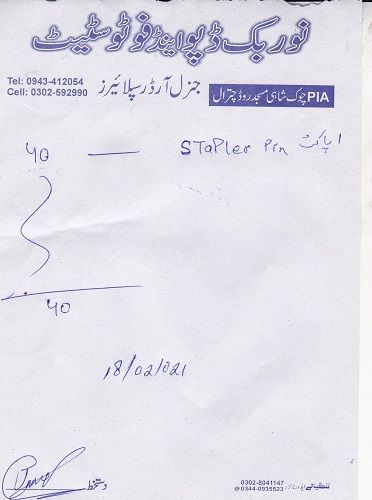 نور بک ڈپو اینڈ فوٹو سٹیٹ
Tel: 0943-412054
Cell: 0302-592990
جنرل آرڈر سپلائیرز
PIA چوک شاہی مسجد روڈ چترال
40 — STaPler Pin ا پاکٹ
40
18/02/021
دستخط
0302-8041147
0344-0935523